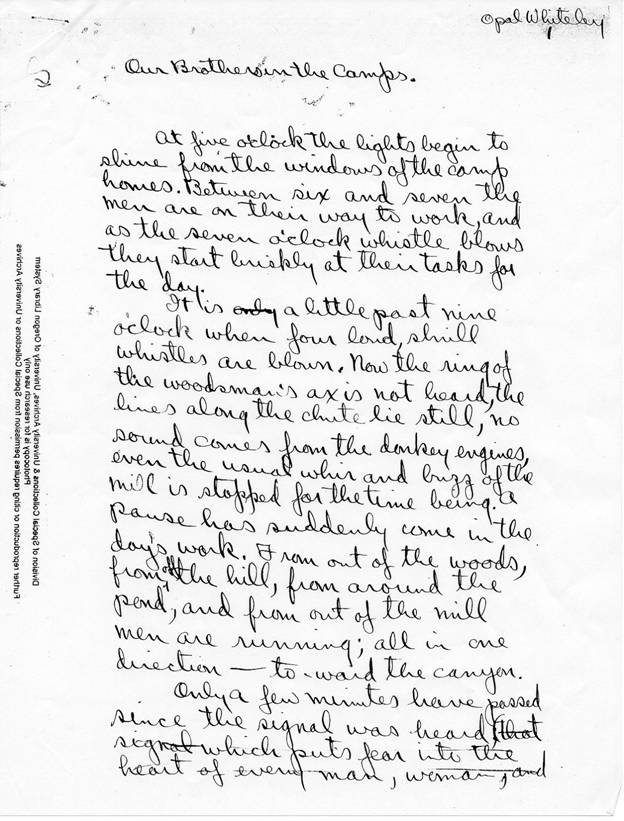 Opal Whiteley
1
2
Our Brothers in the Camps.
At five o'clock the lights begin to
shine from the windows of the camp
homes. Between six and seven the
men are on their way to work, and
as the seven o'clock whistle blows
they start briskly at their tasks for
the day.
It is only a little past nine
o'clock when four loud, shrill
whistles are blown. Now the ring of
the woodsman's ax is not heard, the
lines along the chute lie still, no
sound comes from the donkey engines,
even the usual whir and buzz of the
mill is stopped for the time being. A
pause has suddenly come in the
day's work. From out of the woods,
from off the hill, from around the
pond, and from out of the mill
men are running; all in one
direction — to-ward the canyon.
Only a few minutes have passed
since the signal was heard, that
signal which puts fear into the
heart of every man, woman, and
Division of Special Collections & University Archives, University of Oregon Library System
Photocopy is for research use only.
Further reproduction or citing requires permission from Special Collections or University Archives